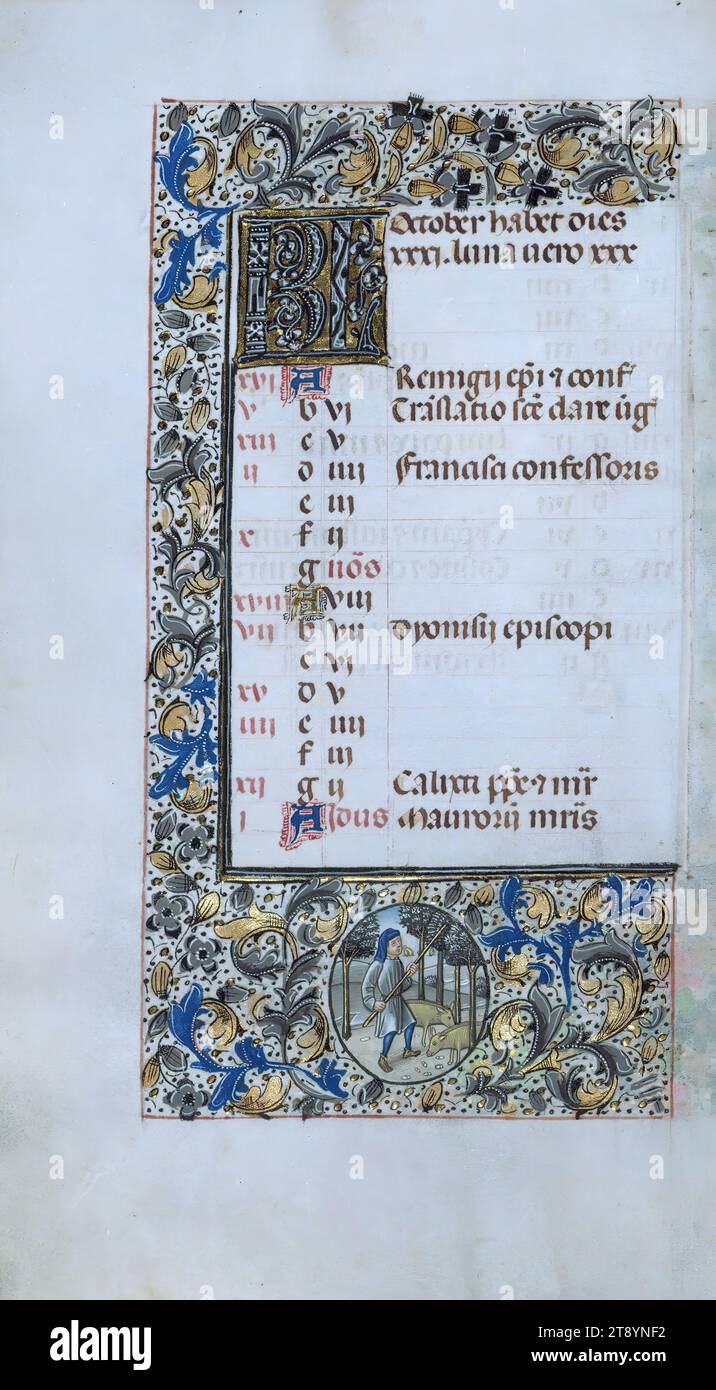 KL October habet dies
xxxj. luna vero xxx
xvj A Remigij ep̄i ⁊ conf̄
v b vj Trāslatio sc̄e clare v̄g
xiij c v
ij d iiij Francisci confessoris
e iij
x f ij
g nōs
xviij A viij
vij b vij dyonisij episcopi
c vj
xv d v
iiij e iiij
f iij
xij g ij Calixti pp̄e ⁊ mr̄
j A Idus Maurorij mr̄is
alamy
Image ID: 2T8YNF2
www.alamy.com